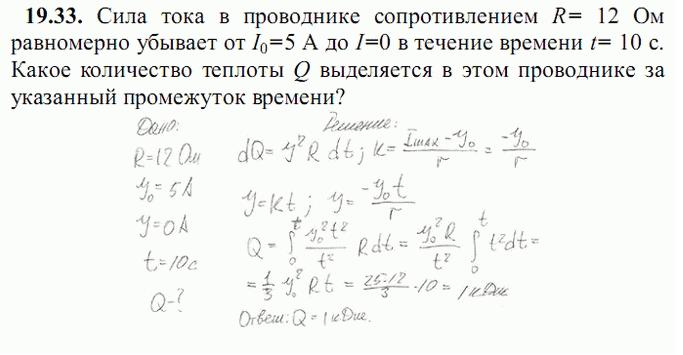 19.33. Сила тока в проводнике сопротивлением R= 12 Ом
равномерно убывает от I₀=5 А до I=0 в течение времени t= 10 с.
Какое количество теплоты Q выделяется в этом проводнике за
указанный промежуток времени?
Дано:
R=12 Ом
y₀=5А
y=0А
t=10с
Q-?
Решение:
dQ= y²R dt; K= (Imax-y₀)/r = -y₀/r
y=Kt; y= -y₀t/r
Q= ∫₀ᵗ y₀²t²/t² Rdt= y₀²R/t² ∫₀ᵗ t²dt=
= 1/3 y₀² Rt = 25·12/3 ·10= 1кДж
Ответ: Q=1кДж.